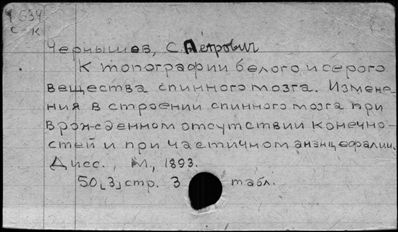 Р 634
С-К
Чернышев, С. Петрович
К топографии белого и серого
вещества спинного мозга. Измене-
ния в строении спинного мозга при
врожденном отсутствии конечно-
стей и при частичном анэнцефалии.
Дисс., М., 1893.
50,[3] стр. 3 табл.